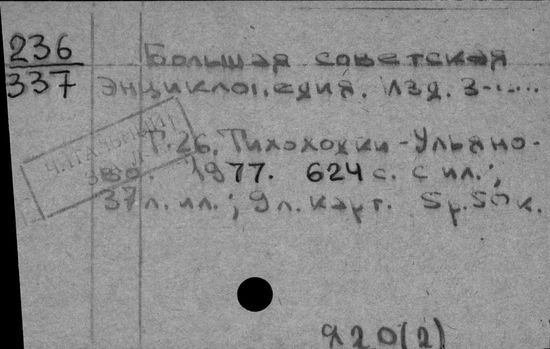 236
337
Большая советская
энциклопедия. Изд. 3-.....
Т. 26. Тихоходки - Ульяно-
во. 1977. 624 с. с ил.;
37 л. ил.; 9 л. карт. 5р. 50 к.
Я20(2)